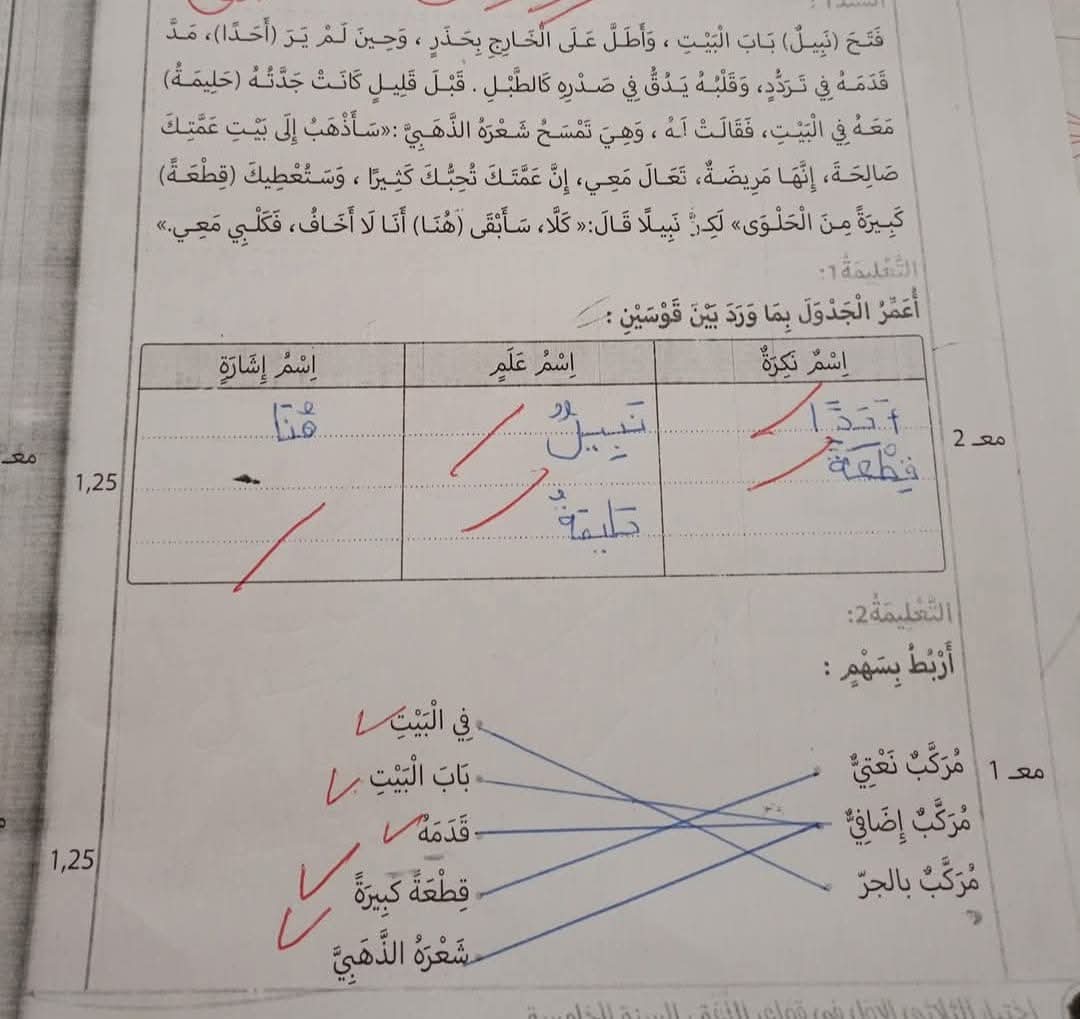 السند1:
فَتَحَ (نَبِيلٌ) بَابَ الْبَيْتِ ، وَأَطَلَّ عَلَى الْخَارِجِ بِحَذَرٍ ، وَحِينَ لَمْ يَرَ (أَحَدًا)، مَدَّ
قَدَمَهُ فِي تَرَدُّدٍ، وَقَلْبُهُ يَدُقُّ فِي صَدْرِهِ كَالطَّبْلِ . قَبْلَ قَلِيلٍ كَانَتْ جَدَّتُهُ (حَلِيمَةُ)
مَعَهُ فِي الْبَيْتِ، فَقَالَتْ لَهُ ، وَهِيَ تَمْسَحُ شَعْرَهُ الذَّهَبِيَّ :«سَأَذْهَبُ إِلَى بَيْتِ عَمَّتِكَ
صَالِحَةَ، إِنَّهَا مَرِيضَةٌ، تَعَالَ مَعِي، إِنَّ عَمَّتَكَ تُحِبُّكَ كَثِيرًا ، وَسَتُعْطِيكَ (قِطْعَةً)
كَبِيرَةً مِنَ الْحَلْوَى» لَكِنَّ نَبِيلًا قَالَ:« كَلَّا، سَأَبْقَى (هُنَا) أَنَا لَا أَخَافُ، فَكَلْبِي مَعِي.»
التَّعْلِيمَةُ1:
أُعَمِّرُ الْجَدْوَلَ بِمَا وَرَدَ بَيْنَ قَوْسَيْنِ :
اِسْمٌ نَكِرَةٌ اِسْمُ عَلَمٍ اِسْمُ إِشَارَةٍ
أَحَدًا نَبِيلٌ هُنَا
قِطْعَةً
حَلِيمَةُ
معـ 2
معـ
1,25
التَّعْلِيمَةُ2:
أَرْبُطُ بِسَهْمٍ :
فِي الْبَيْتِ
بَابَ الْبَيْتِ
قَدَمَهُ
قِطْعَةً كَبِيرَةً
شَعْرَهُ الذَّهَبِيَّ
مُرَكَّبٌ نَعْتِيٌّ
مُرَكَّبٌ إِضَافِيٌّ
مُرَكَّبٌ بالجرّ
معـ 1
1,25